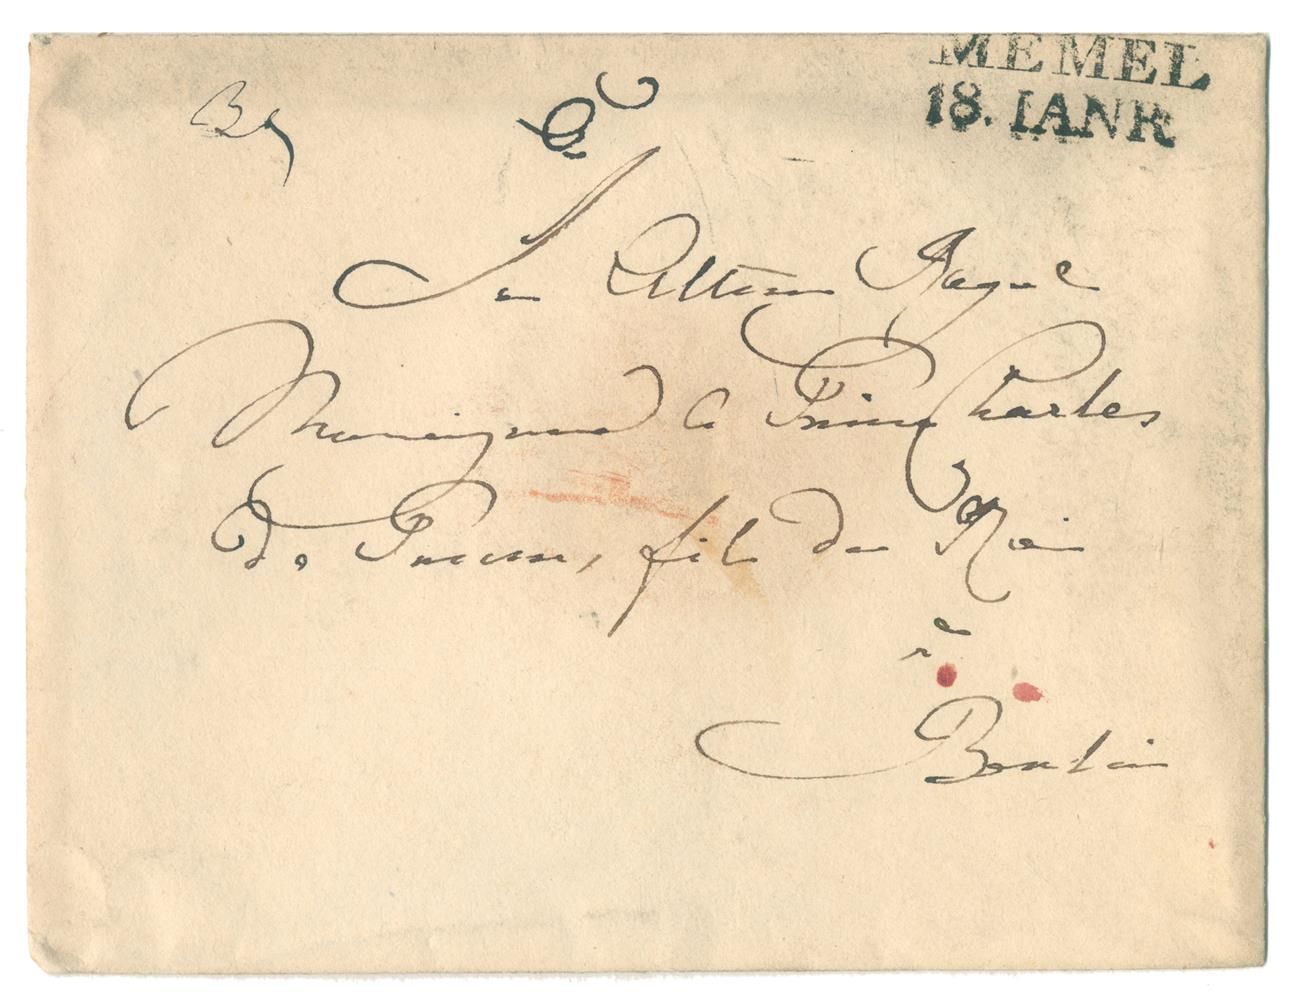 MEMEL
18. IANR
Sa Altesse Royale
Monseigneur le Prince Charles
de Prusse, fils du Roi
à
Berlin